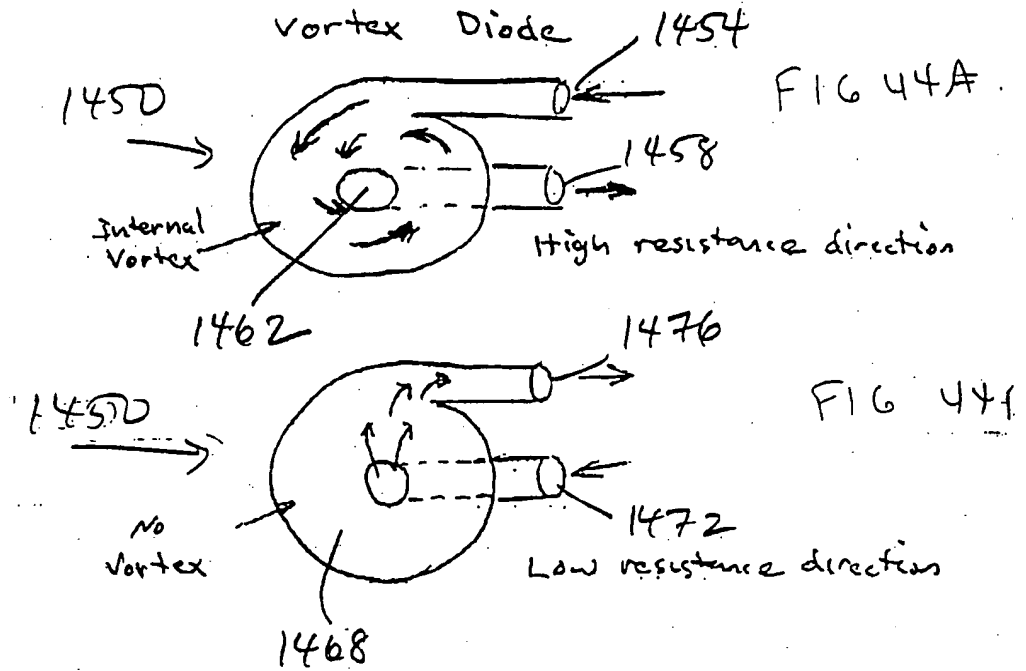 Vortex Diode
1454
FIG 44A
1450
1458
Internal
Vortex
High resistance direction
1462
1476
1450
FIG 44
1472
No
Vortex
Low resistance direction
1468